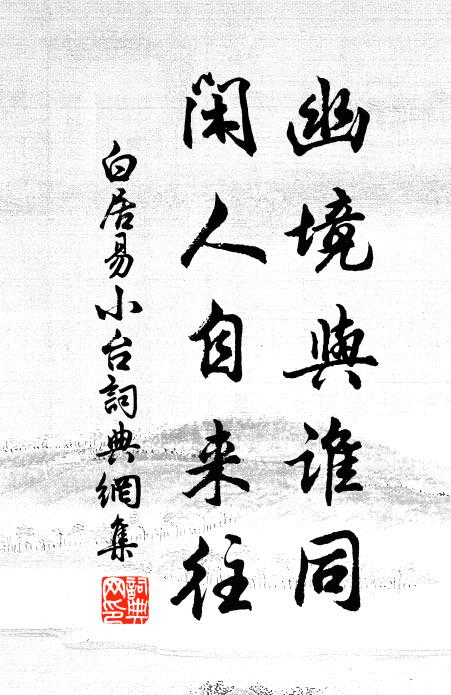 幽境與誰同
閑人自来往
白居易小台詞典網集
詞典网印